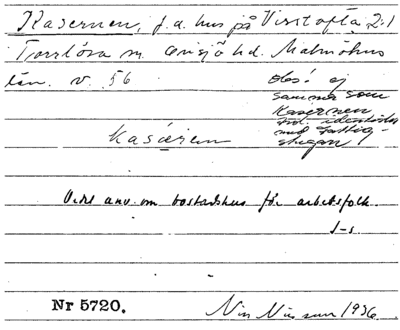 Kasernen, f.d. hus på Visstofta 2:1
Torrlösa sn. Onsjö hd. Malmöhus
län. v. 56
obs! ej
samma som
Kasernen
identisk
med Fattig-
stugan
kasæren
Ordet anv. om bostadshus för arbetsfolk.
J-s
Nr 5720.
Nils Nilsson 1936.